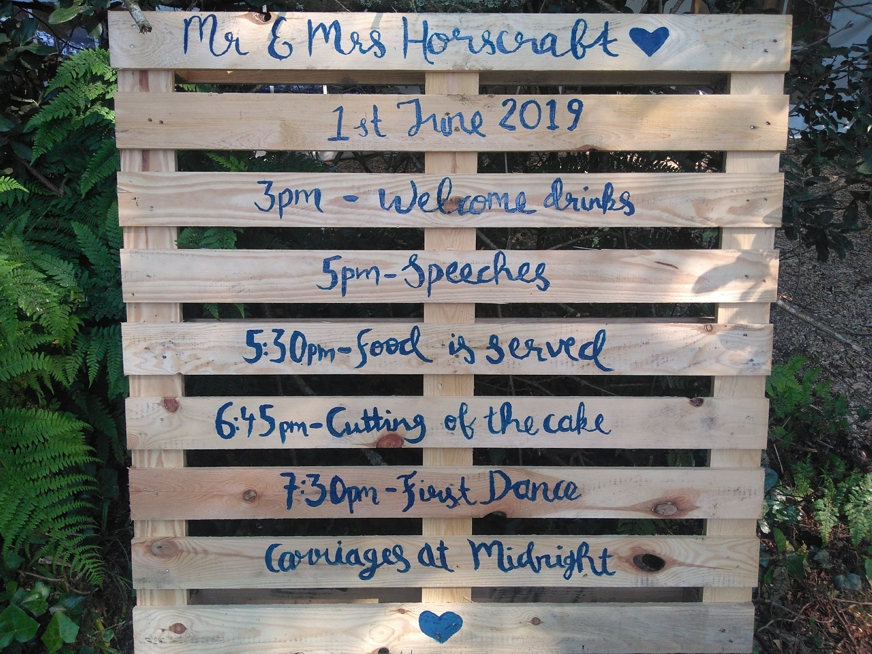 Mr & Mrs Horscraft
1st June 2019
3pm - Welcome drinks
5pm-Speeches
5:30pm-food is served
6:45pm-Cutting of the cake
7:30pm-First Dance
Carriages at Midnight